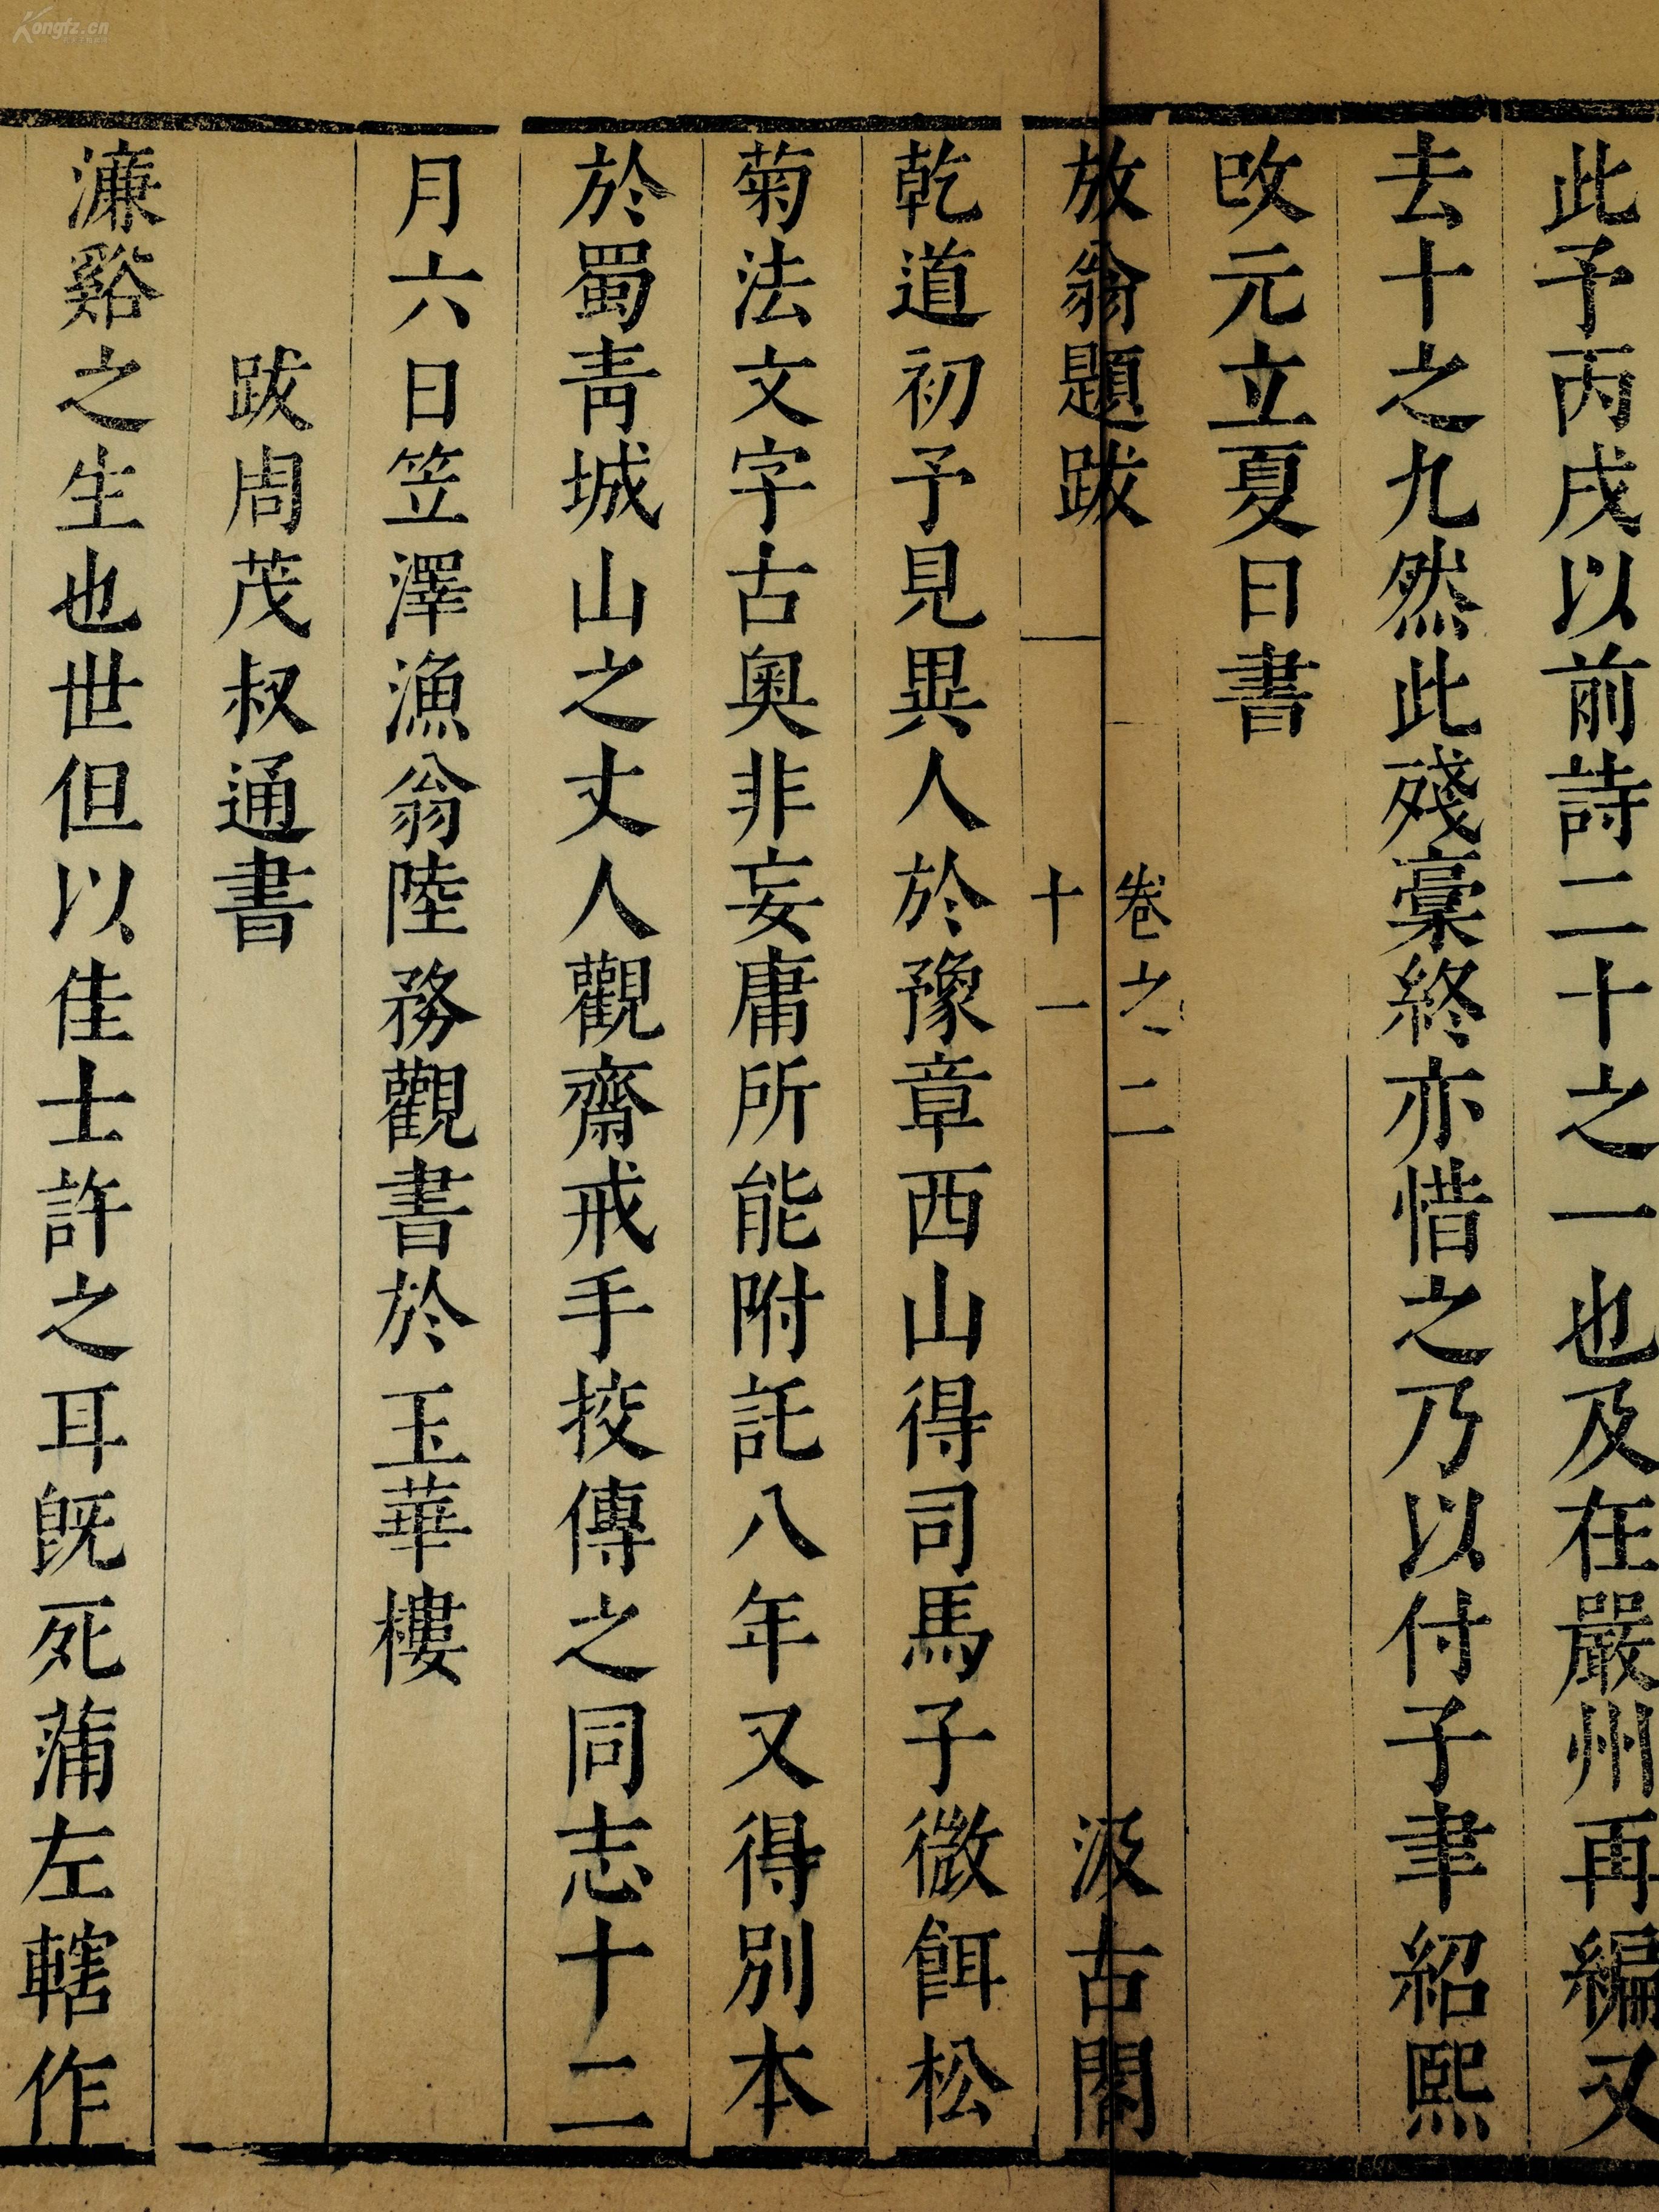 此予丙戌以前詩二十之一也及在嚴州再編又
去十之九然此殘稾終亦惜之乃以付子聿紹熙
改元立夏日書
放翁題跋 卷之二 十一 汲古閣
乾道初予見異人於豫章西山得司馬子微餌松
菊法文字古奧非妄庸所能附託八年又得別本
於蜀青城山之丈人觀齋戒手挍傳之同志十二
月六日笠澤漁翁陸務觀書於玉華樓
跋周茂叔通書
濂谿之生也世但以佳士許之耳旣死蒲左轄作
Kongfz.cn